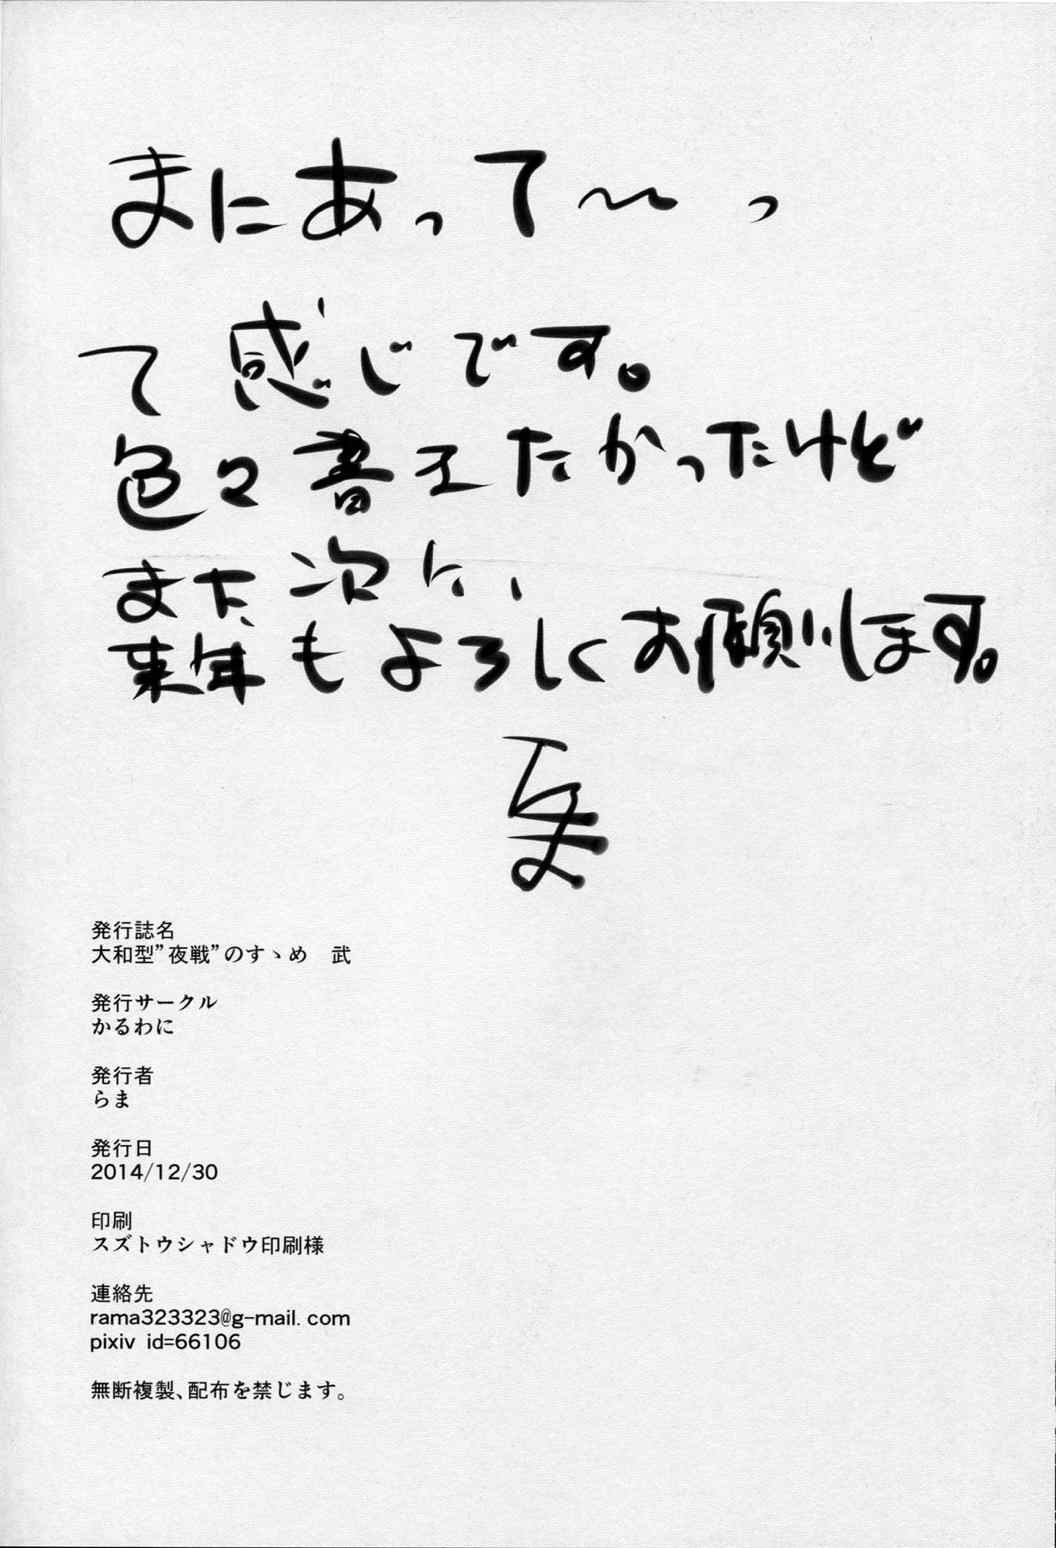 まにあって〜っ
て感じです。
色々書きたかったけど
また次に、
来年もよろしくお願いします。
らま
発行誌名
大和型”夜戦”のすゝめ 武
発行サークル
かるわに
発行者
らま
発行日
2014/12/30
印刷
スズトウシャドウ印刷様
連絡先
rama323323@g-mail.com
pixiv id=66106
無断複製、配布を禁じます。